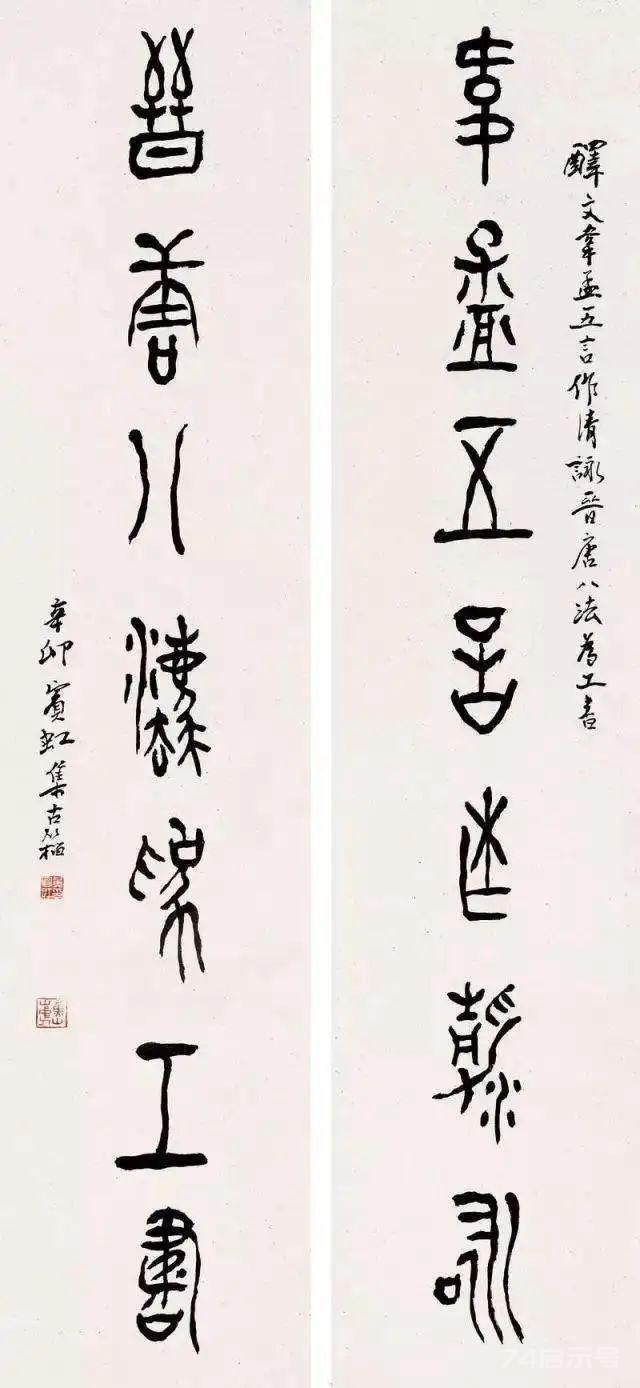 韋孟五言作清詠
釋文韋孟五言作清詠晉唐八法為工書
晉唐八法為工書
辛卯賓虹集古籀
74启示号